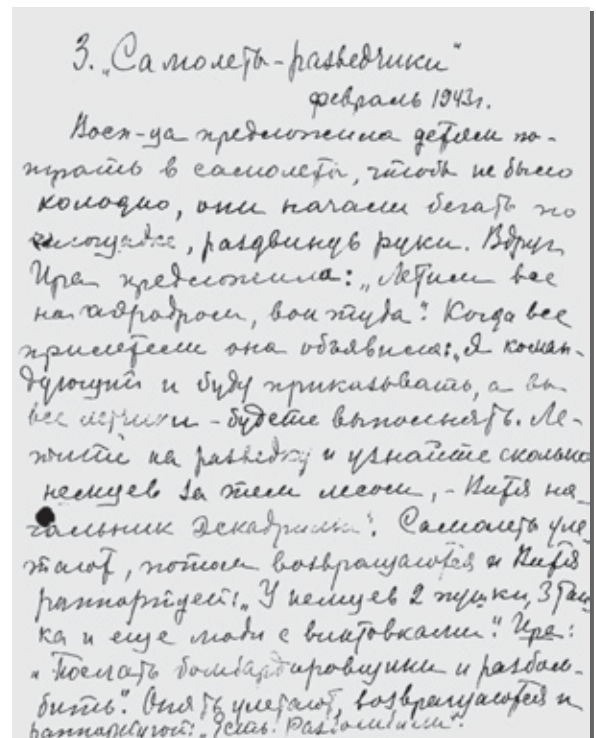 3. „Самолеты-разведчики“
февраль 1943г.
Восп-ца предложила детям по-
играть в самолеты, чтобы не было
холодно, они начали бегать по
площадке, раздвинув руки. Вдруг
Ира предложила: „Летим все
на аэродром, вон туда“. Когда все
прилетели она объявила: „Я коман-
дующий и буду приказывать, а вы
все летчики - будете выполнять. Ле-
тите на разведку и узнайте сколько
немцев за тем лесом, - Витя на-
чальник эскадрильи“. Самолеты уле-
тают, потом возвращаются и Витя
раппортует: „У немцев 2 пушки, 3 тан-
ка и еще люди с винтовками“. Ира:
„Послать бомбардировщики и разбом-
бить“. Опять улетают, возвращаются и
раппортуют: „Есть. Разбомбили“.